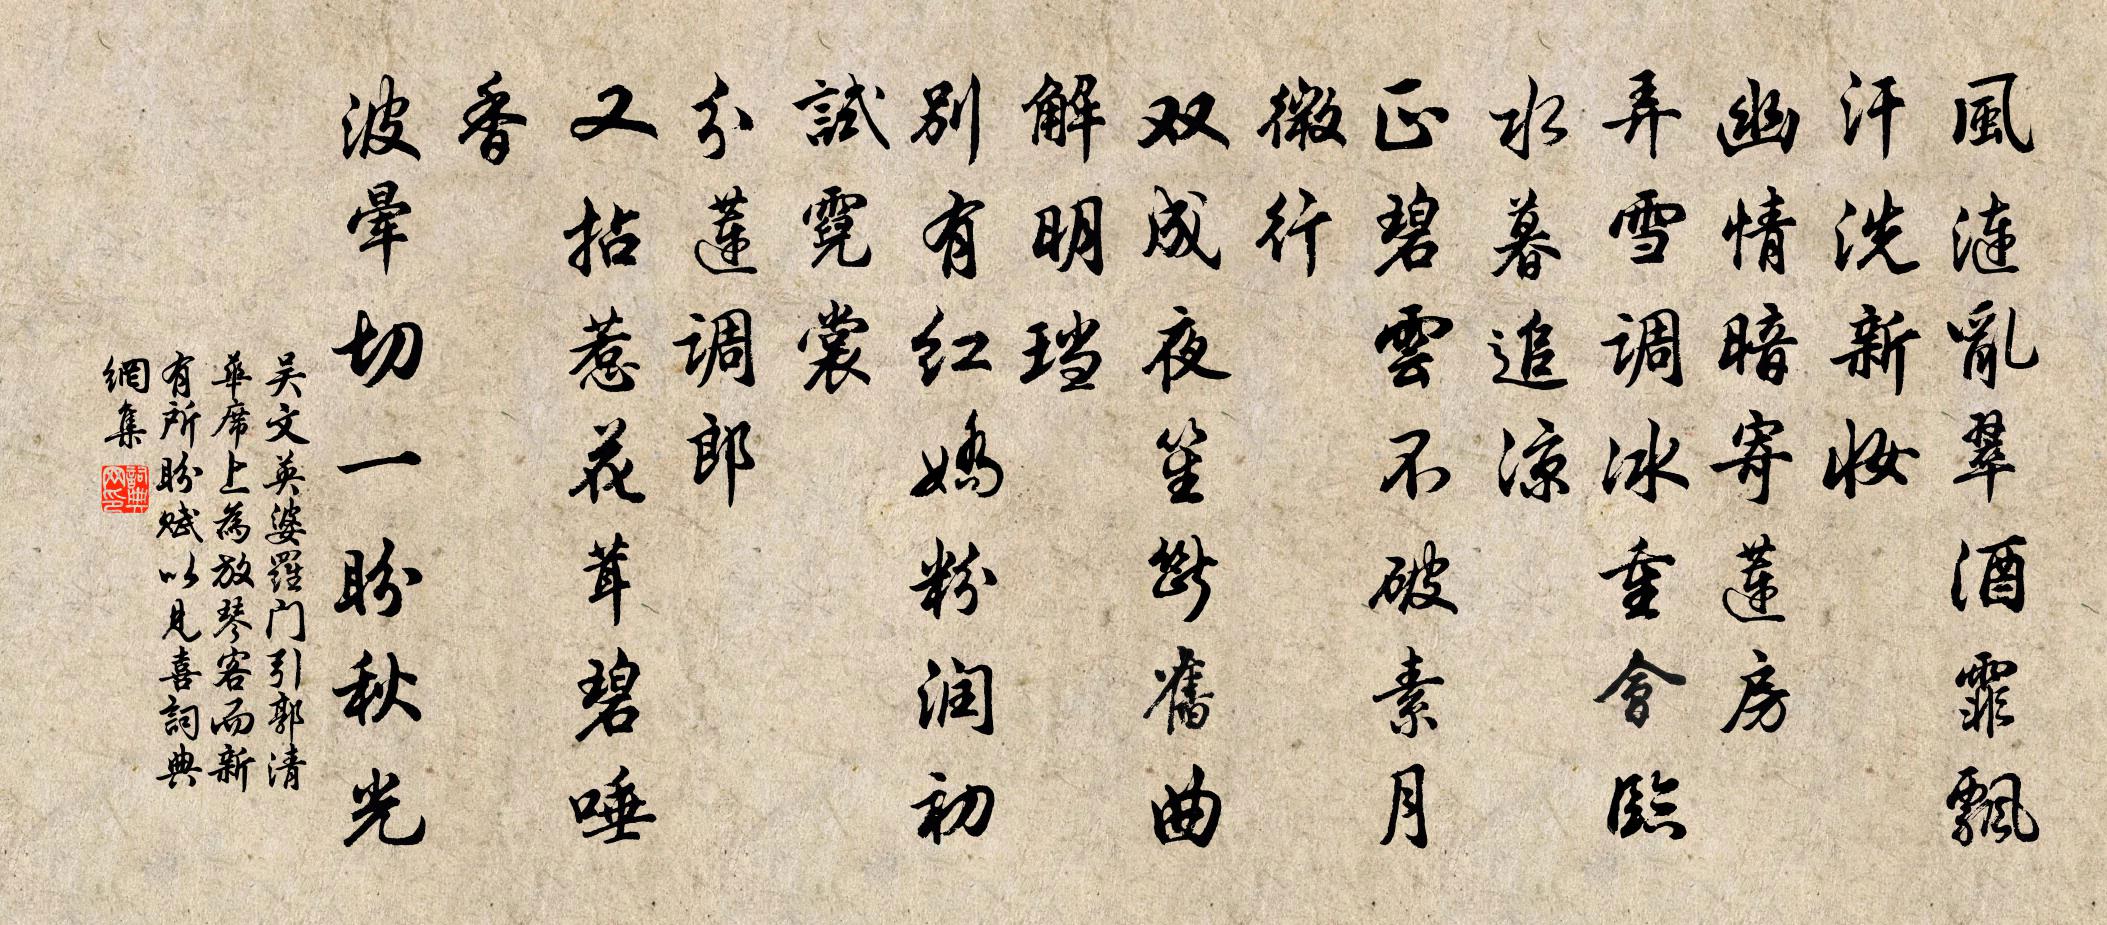 風漣亂翠酒霏飄
汗洗新妝
幽情暗寄蓮房
弄雪调冰重會臨
水暮追涼
正碧雲不破素月
微行
双成夜笙斷舊曲
解明珰
別有红嬌粉润初
試霓裳
分蓮调郎
又拈惹花茸碧唾
香
波暈切一盼秋光
吴文英婆羅门引郭清
華席上為放琴客而新
有所盼赋以見喜詞典
網集
詞典網印